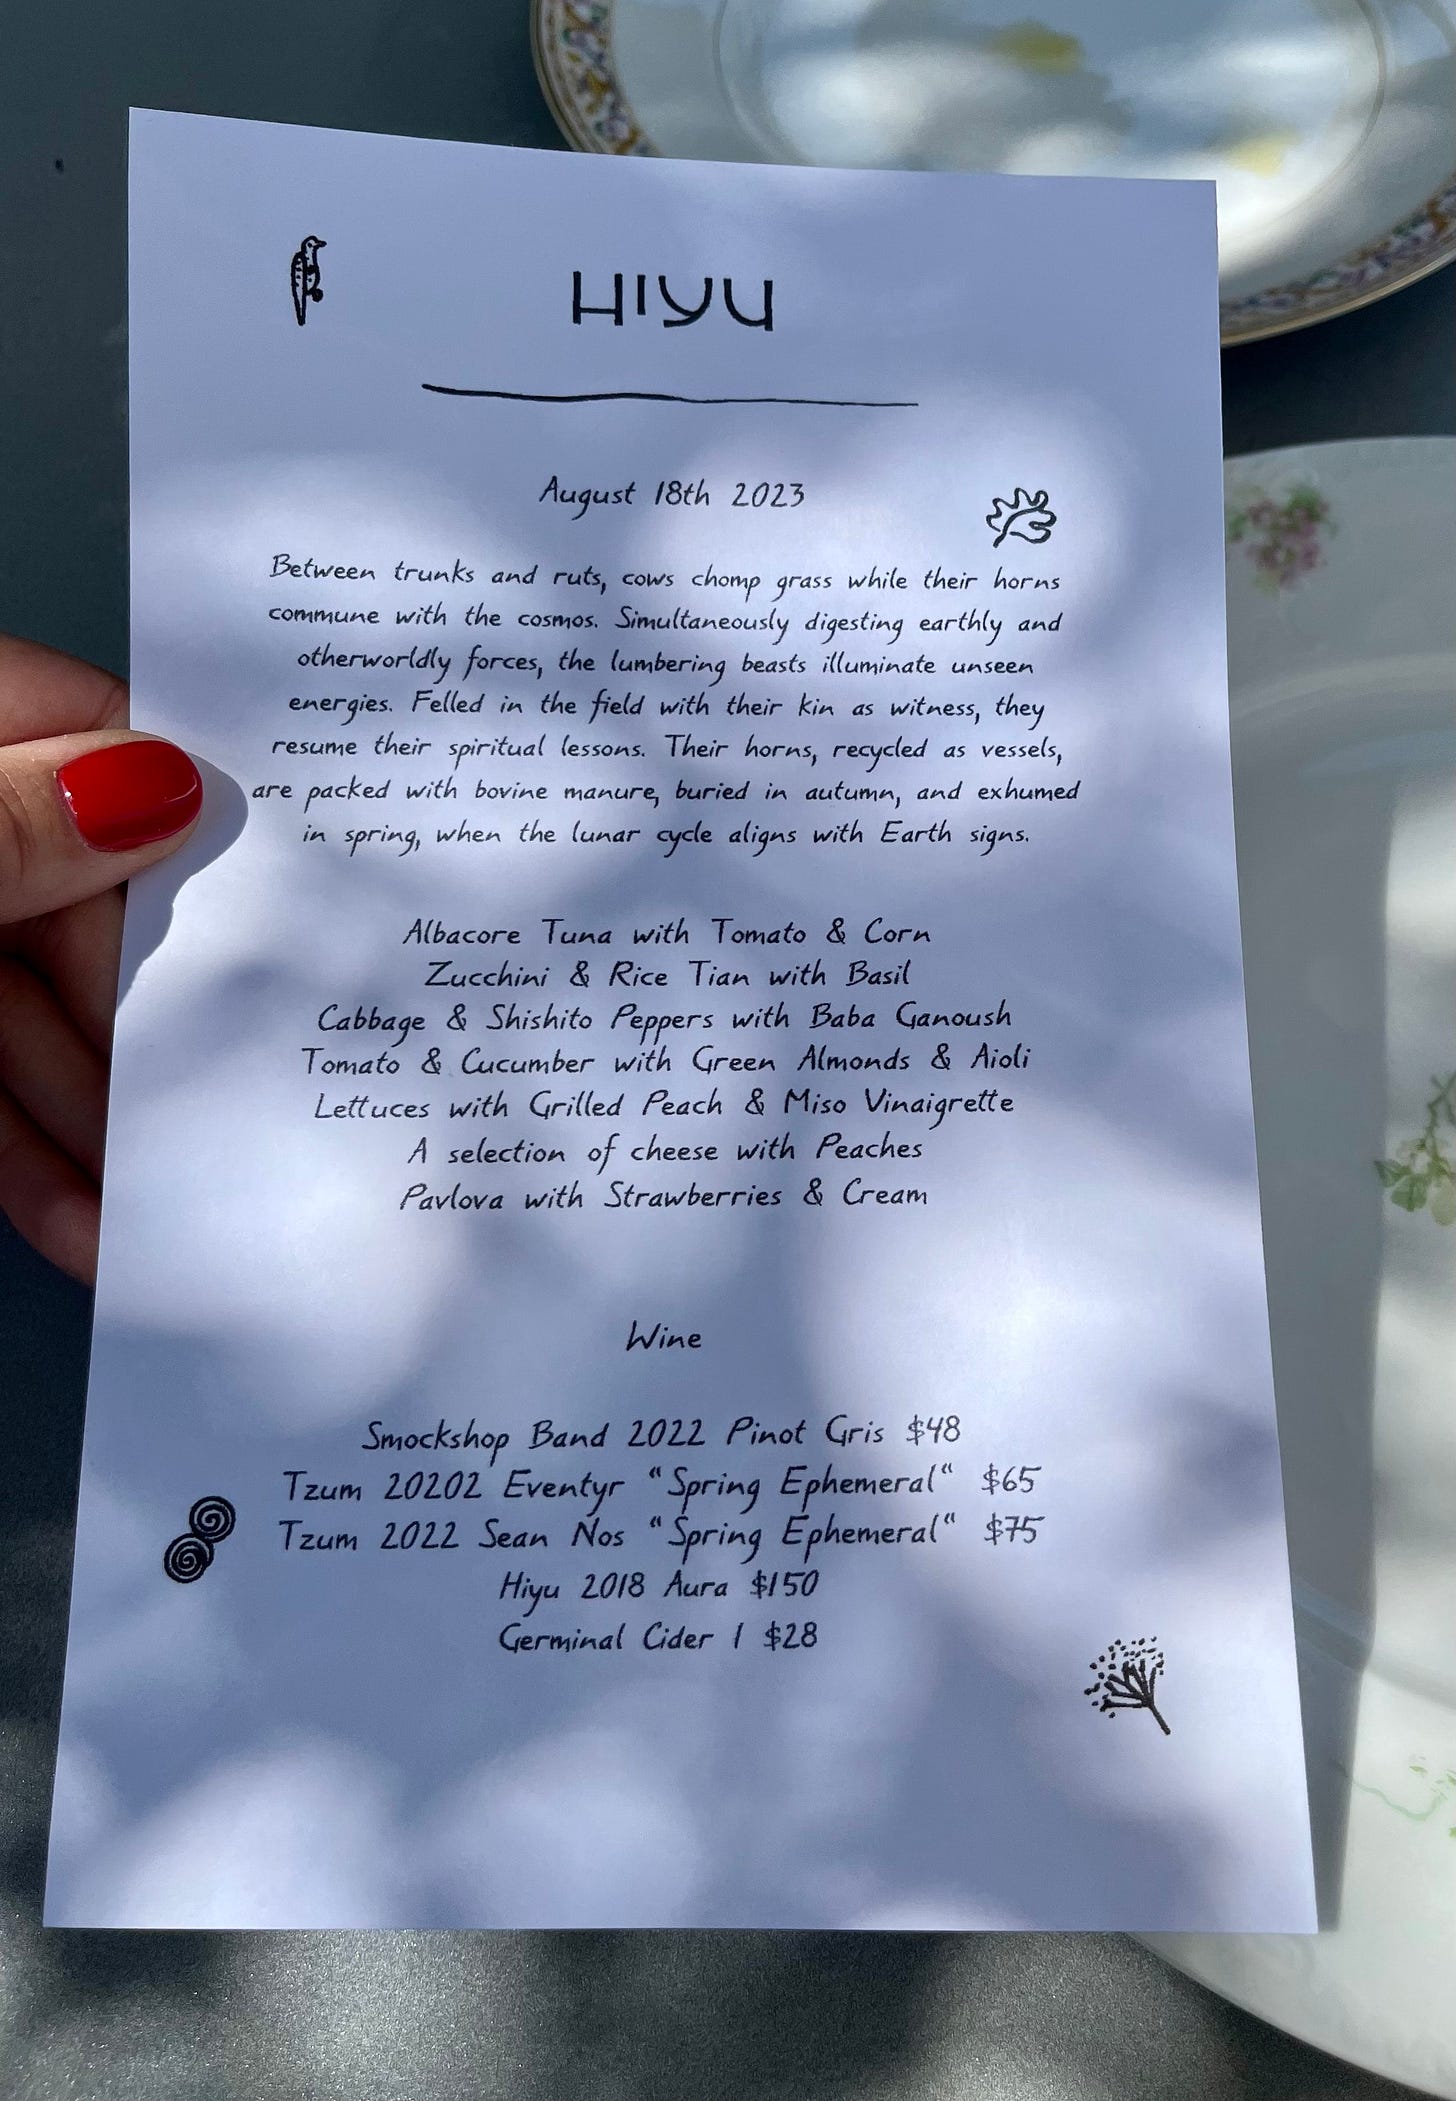 HIYU
August 18th 2023
Between trunks and ruts, cows chomp grass while their horns
commune with the cosmos. Simultaneously digesting earthly and
otherworldly forces, the lumbering beasts illuminate unseen
energies. Felled in the field with their kin as witness, they
resume their spiritual lessons. Their horns, recycled as vessels,
are packed with bovine manure, buried in autumn, and exhumed
in spring, when the lunar cycle aligns with Earth signs.
Albacore Tuna with Tomato & Corn
Zucchini & Rice Tian with Basil
Cabbage & Shishito Peppers with Baba Ganoush
Tomato & Cucumber with Green Almonds & Aioli
Lettuces with Grilled Peach & Miso Vinaigrette
A selection of cheese with Peaches
Pavlova with Strawberries & Cream
Wine
Smockshop Band 2022 Pinot Gris $48
Tzum 20202 Eventyr "Spring Ephemeral" $65
Tzum 2022 Sean Nos "Spring Ephemeral" $75
Hiyu 2018 Aura $150
Germinal Cider 1 $28